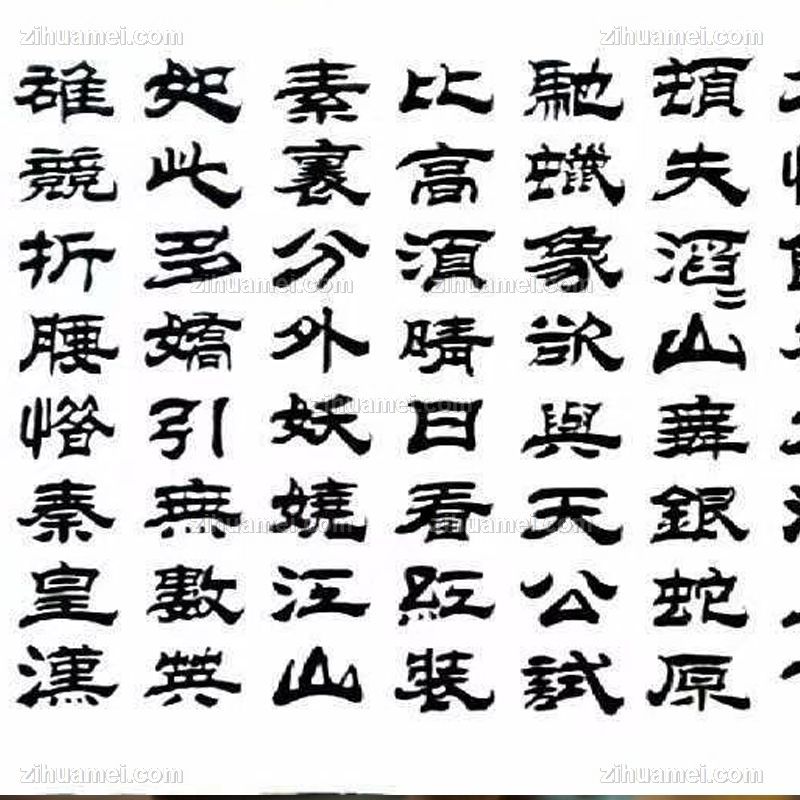 頓失滔〻山舞銀蛇原
馳蠟象欲與天公試
比高須晴日看紅裝
素裹分外妖嬈江山
如此多嬌引無數英
雄競折腰惜秦皇漢
zihuamei.com